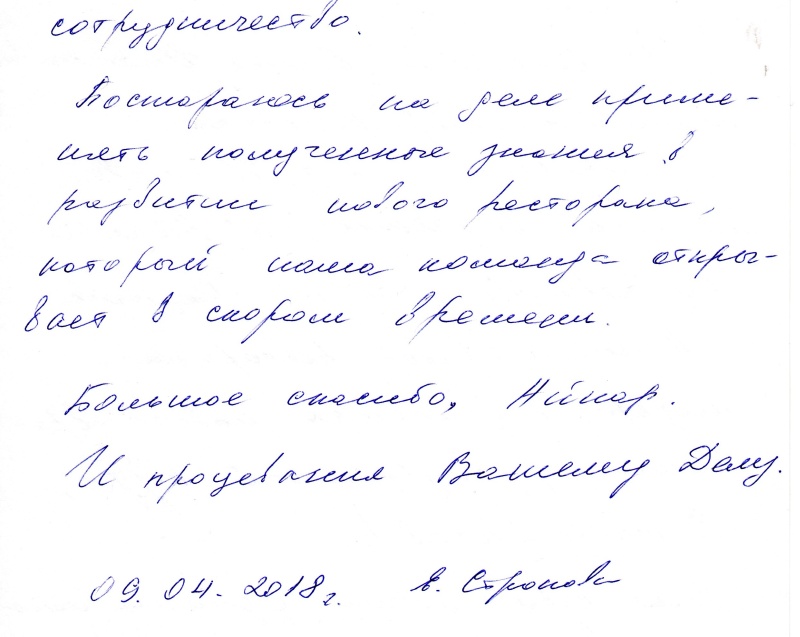 сотрудничество.
Постараюсь на деле приме-
нять полученные знания в
развитии нового ресторана,
который наша команда откры-
вает в скором времени.
Большое спасибо, Айнар.
И процветания Вашему Делу.
09.04.2018г. Е.